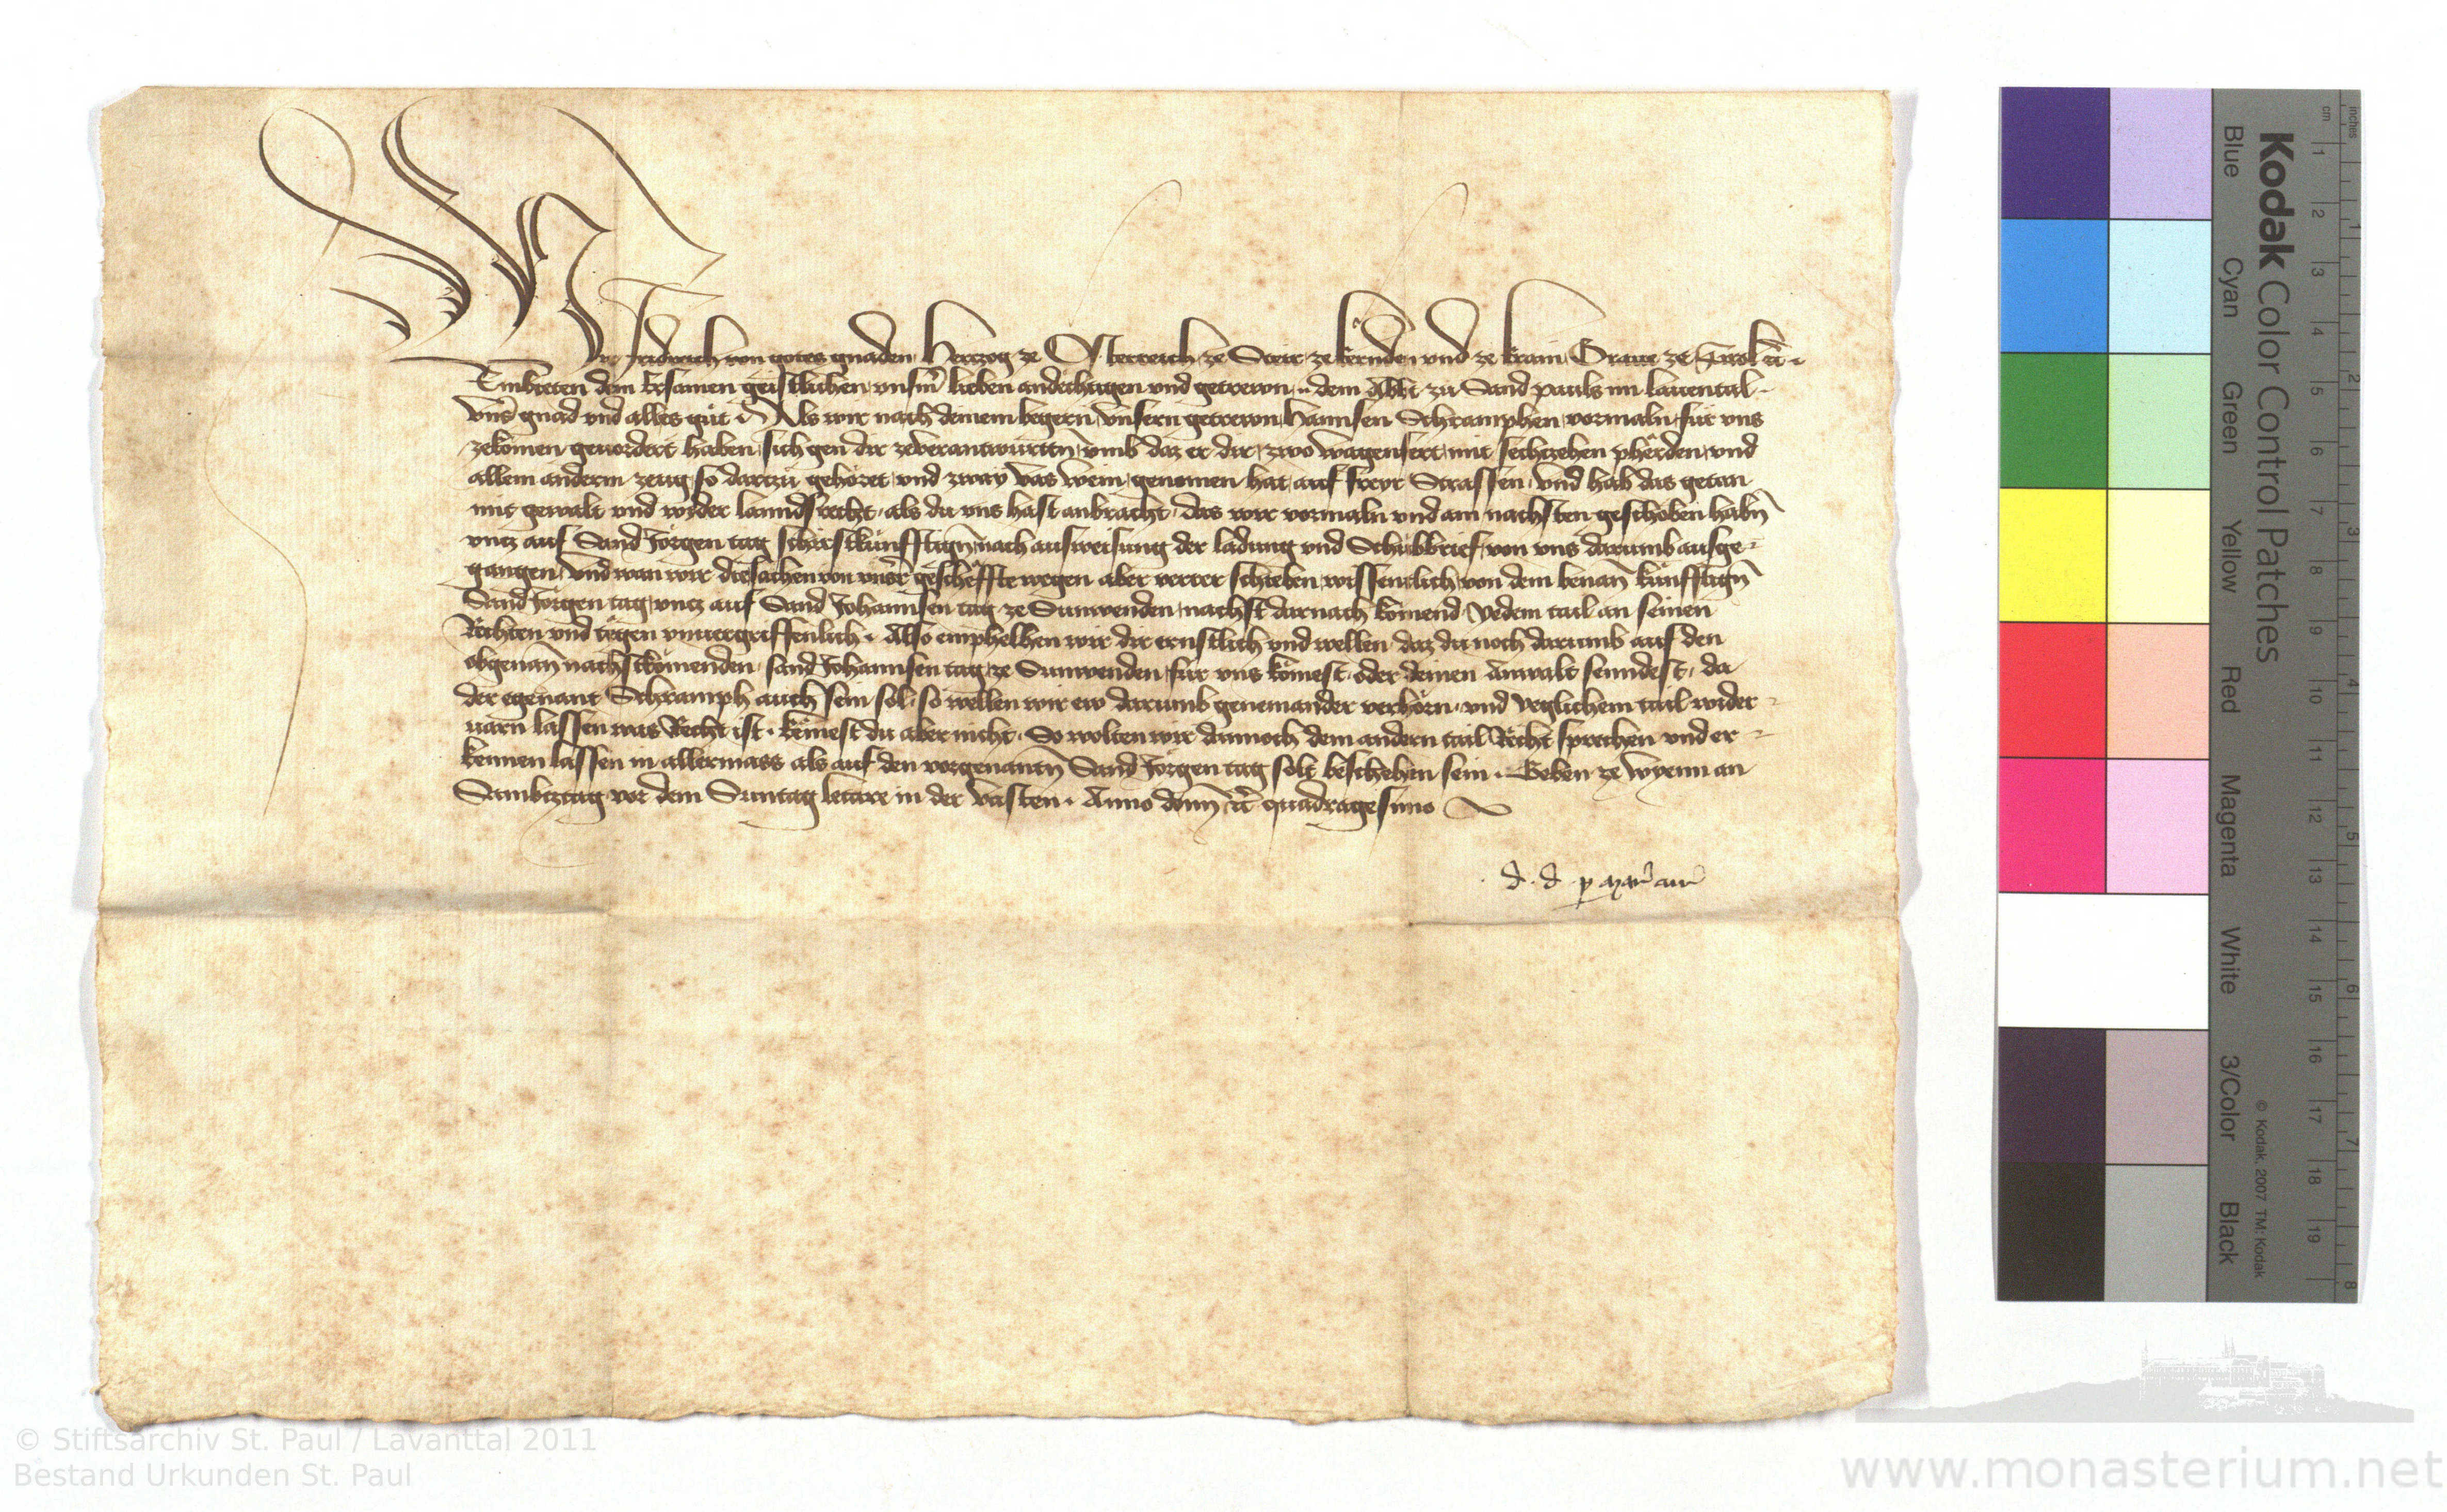 Wir Fridreich von gotes gnaden Hertzog ze Österreich ze Steir ze kernden vnd ze krain Graue ze Tirol etc̄
Embieten dem Ersamen geistlichen vnserm̄ lieben andechtigen vnd getrewn .. dem Abbt zu Sand pauls im lauental
vnsr̄ gnad vnd alles gut Als wir nach deinem begern vnsern getrewn Hannsen Schramphen vormaln für vns
zekomen geuordert haben sich gen dir zeverantwurttn̄ vmb daz er dir zwo wagenfert mit sechtzehen pherden vnd
allem anderm zeug so dartzu gehöret vnd zway vas wein genomen hat auf freyr Strassen vnd hab das getan
mit gewalt vnd wider lanndsrecht als du vns hast anbracht das wir vormaln vnd am nachsten geschoben habn̄
vntz auf Sand Jörgen tag schirstkünfftign̄ nach ausweisung der ladung vnd Schubbrief von vns darumb ausge=
gangen vnd wan wir die sachen von vnsr̄ geschëffte wegen aber verrer schieben wissentlich von dem benan̄ künfftign̄
Sand Jörgen tag vntz auf Sand Johannsen tag ze Sunwenden nachst darnach komend yedem tail an seinen
Rechten vnd tëgen vnuergriffenlich. Also emphelhen wir dir ernstlich vnd wellen daz du noch darumb auf den
obgenan̄ nachstkömenden sand Johannsen tag ze Sunwenden für vns kömest oder deinen Anwalt senndest, da
der egenant Schramph auch sein sol, so wellen wir ew darumb geneinander verhörn vnd yeglichem tail wider=
uarn lassen was Recht ist. kemest du aber nicht. So wolten wir dannoch dem andern tail Recht sprechen vnd er=
kennen lassen in allermass als auf den vorgenantn̄ Sand Jörgen tag solt beschehen sein. Geben ze wyenn an
Sambtztag vor dem Suntag letare in der vasten. Anno domī etc̄ quadragesimo
d. d. p
Kodak Color Control Patches
Blue Cyan Green Yellow Red Magenta White 3/Color Black
© Kodak, 2007 TM: Kodak
cm 1 2 3 4 5 6 7 8 9 10 11 12 13 14 15 16 17 18 19
inches 1 2 3 4 5 6 7 8
© Stiftsarchiv St. Paul / Lavanttal 2011
Bestand Urkunden St. Paul
www.monasterium.net